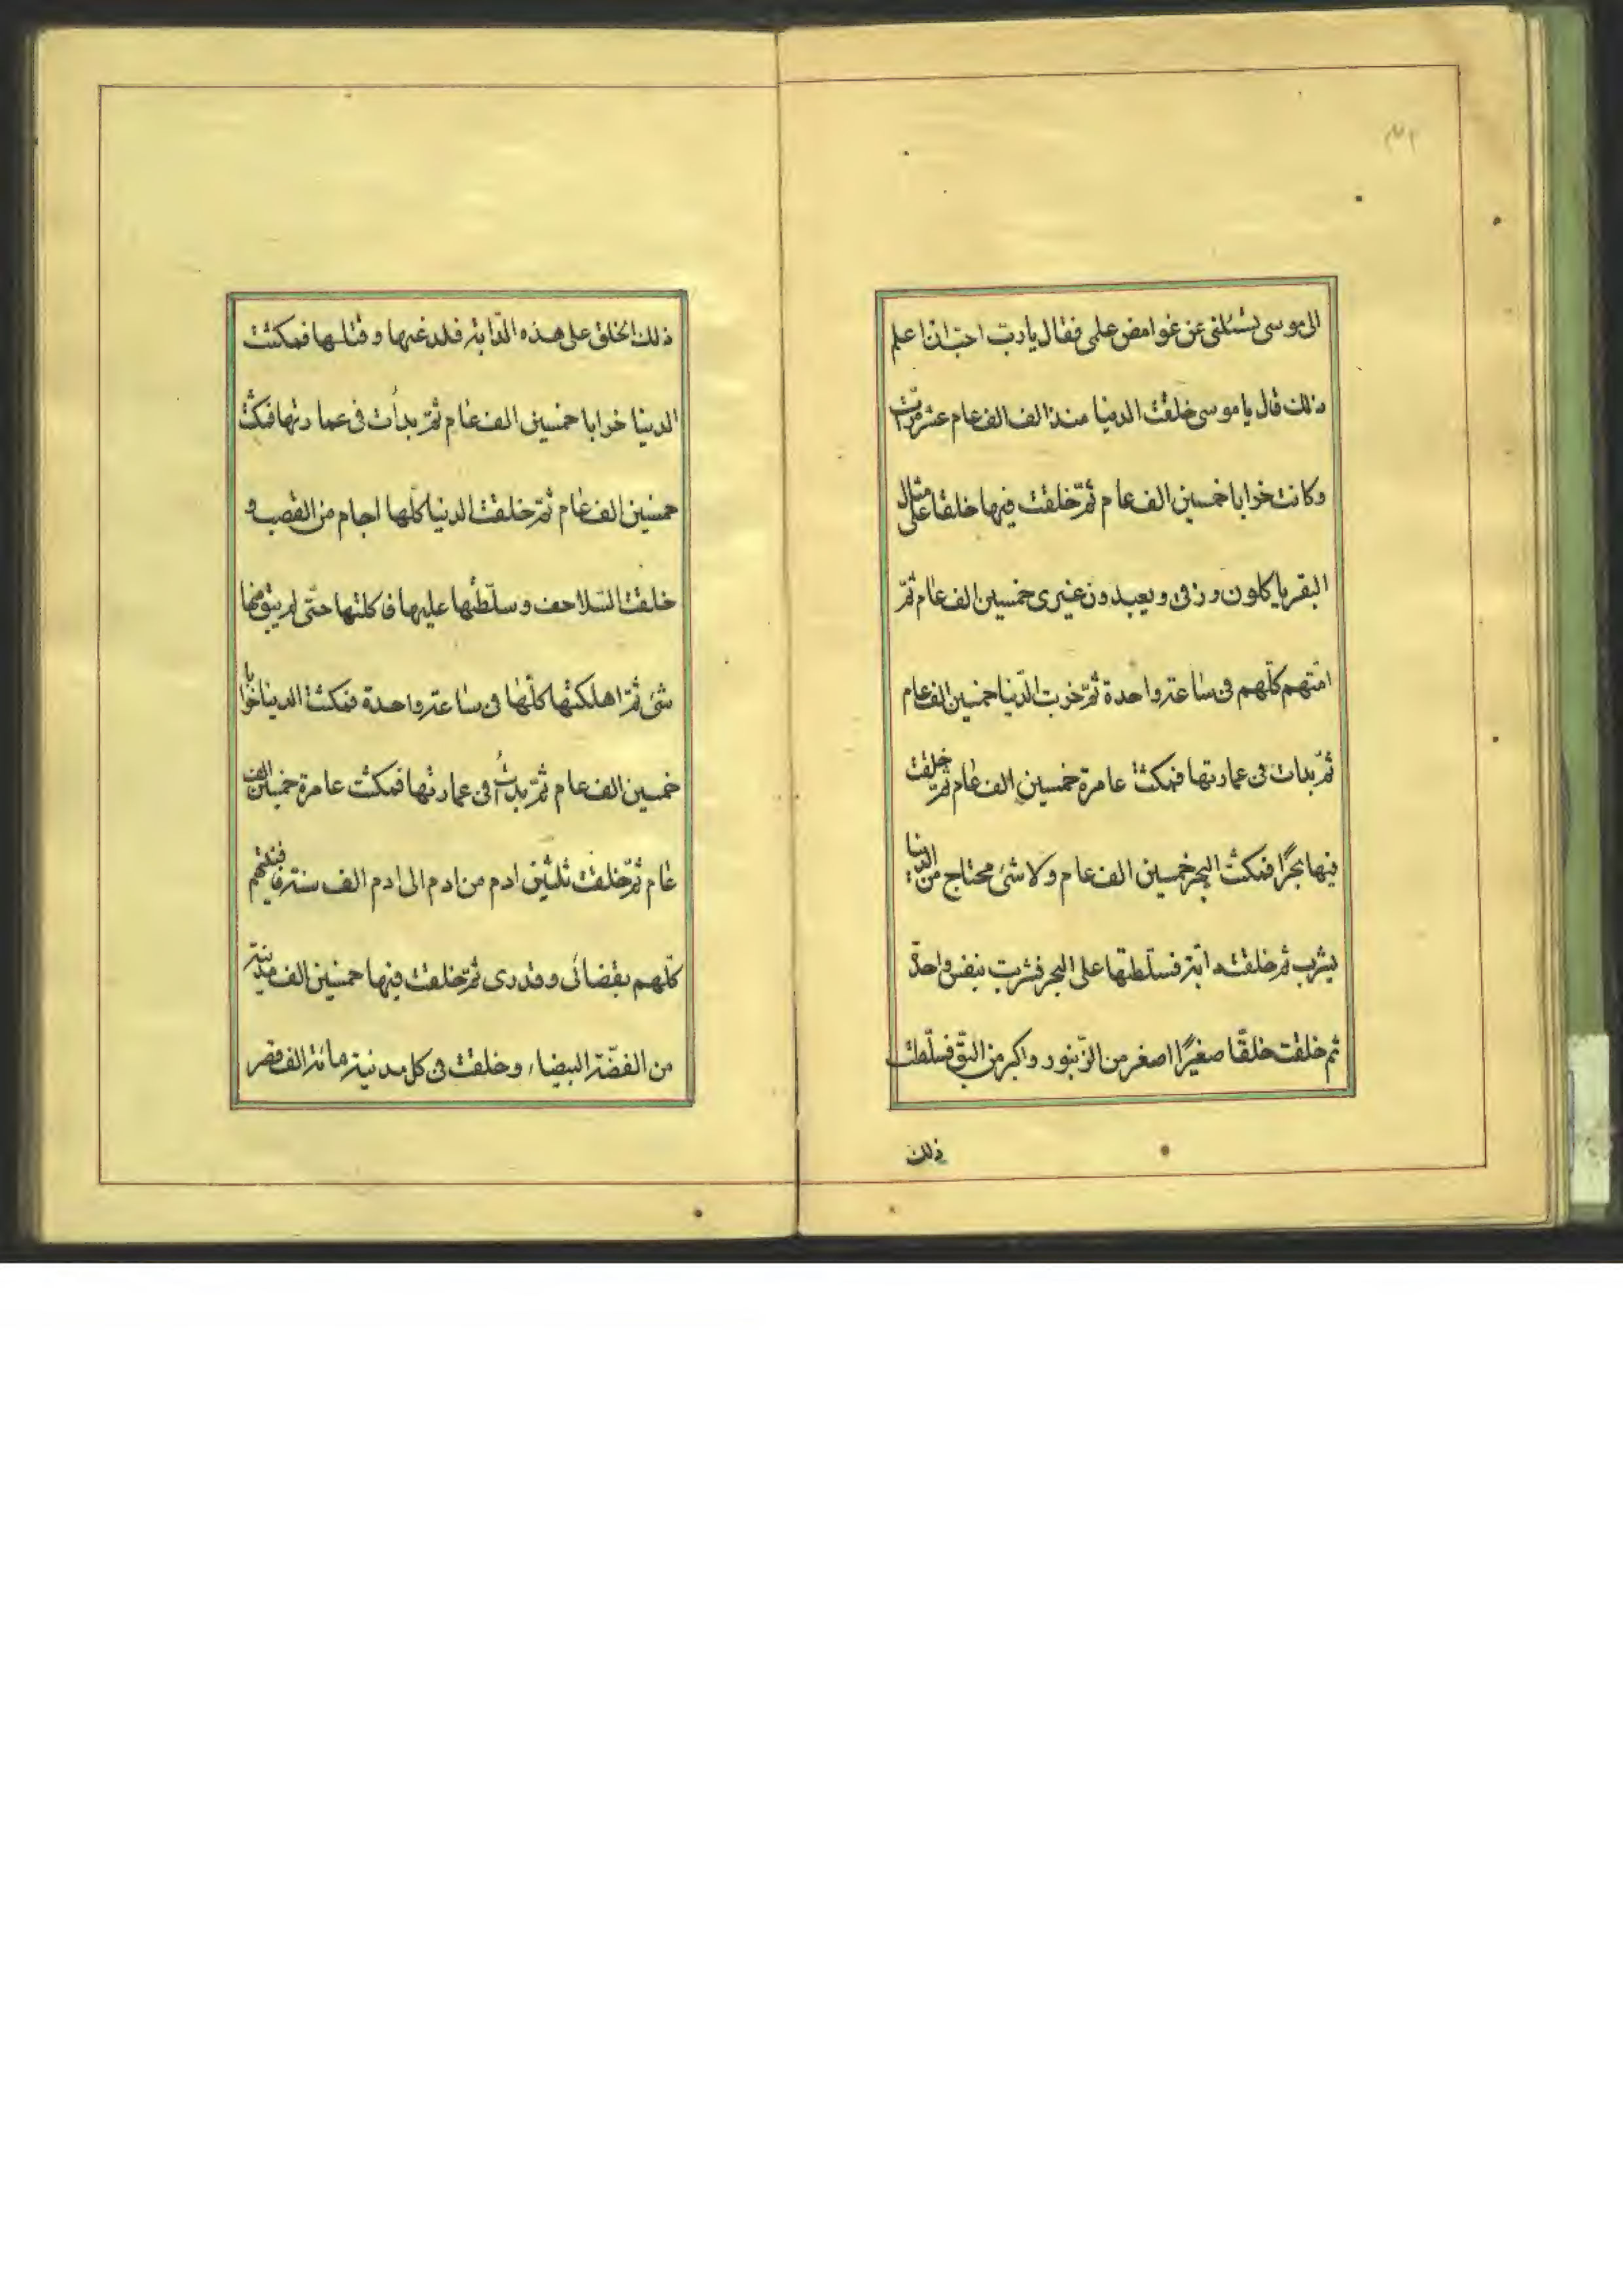 الى موسى تسئلنى عن غوامض علمى فقال يا رب احب ان اعلم
ذلك قال يا موسى خلقت الدنيا منذ الف الف عام عشر مرات
وكانت خرابا خمسين الف عام ثمّ خلقت فيها خلقا على مثال
البقر ياكلون رزقى ويعبدون غيرى خمسين الف عام ثمّ
امتهم كلّهم فى ساعة واحدة ثمّ خربت الدّنيا خمسين الف عام
ثمّ بدات فى عمارتها فمكثت عامرة خمسين الف عام ثمّ خلقت
فيها بحرًا فمكث البحر خمسين الف عام ولا شئ محتاج من الدنيا
يشرب ثم خلقت دابّة فسلّطتها على البحر فشربت بنفس واحدة
ثم خلقت خلقًا صغيرًا اصغر من الزّنبور واكبر من البقّ فسلّطت
ذلك
ذلك الخلق على هذه الدّابة فلدغها وقتلها فمكثت
الدنيا خرابا خمسين الف عام ثمّ بدأت فى عمارتها فمكثت
خمسين الف عام ثمّ خلقت الدنيا كلّها اجام من القصب و
خلقت السّلاحف وسلّطتها عليها فاكلتها حتّى لم يبق منها
شئ ثمّ اهلكتها كلّها فى ساعة واحدة فمكثت الدنيا خرابا
خمسين الف عام ثمّ بدأت فى عمارتها فمكثت عامرة خمسين الف
عام ثمّ خلقت ثلثين ادم من ادم الى ادم الف سنة فافنيتهم
كلّهم بقضائى وقدرى ثمّ خلقت فيها خمسين الف مدينة
من الفضّة البيضاء وخلقت فى كل مدينة مائة الف قصر